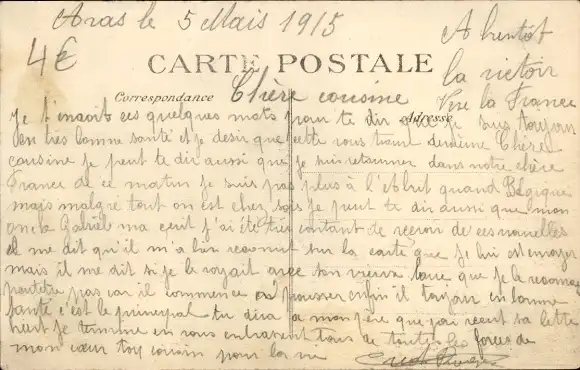 Aras le 5 Mais 1915
4€
CARTE POSTALE
A bentôt
la victoir
Vive la France
Correspondance
Adresse
Chère cousine
Je t'envoit ces quelques mots pour te dir que je suis toujour
en très bonne santé et je desir que cette vous trouve de meme Chère
cousine je peut te dir aussi que je suis retourner dans notre chère
France de ce matin je suis pas plus à l'Abrit quand Bégique
mais malgré tout on est cher sois je peut te dir aussi que mon
oncle Gabriel ma ecrit j'ai été très contant de recevoir de ces nouvelles
et me dit qu'il m'a bien reconnut sur la carte que je lui est envoyer
mais il me dit si je le voyait avec son vieux que je le reconnai
peutetre pas car il commence a pousser enfin il toujour en bonne
santé c'est le principal tu dira a mon père que j'ai recut sa lettre
je termine en vous enbrasent tous de toutes les forces de
mon cœur toy cousin pour la vie